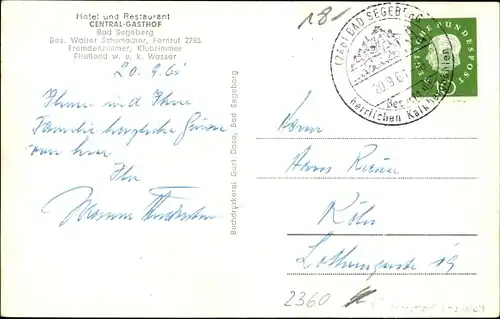 Hotel und Restaurant
CENTRAL-GASTHOF
Bad Segeberg
Bes. Walter Schumacher, Fernruf 2785
Fremdenzimmer, Klubzimmer
Fließend w. u. k. Wasser
20.9.61
Ihnen und Ihrer
Familie herzliche Grüsse
von hier
Ihr
Buchdruckerei Gust Dose, Bad Segeberg
18.-
BAD SEGEBERG
20.9.61
herrlichen Kalkberghöhlen
DEUTSCHE BUNDESPOST
Herrn
Hans
Köln
19
2360